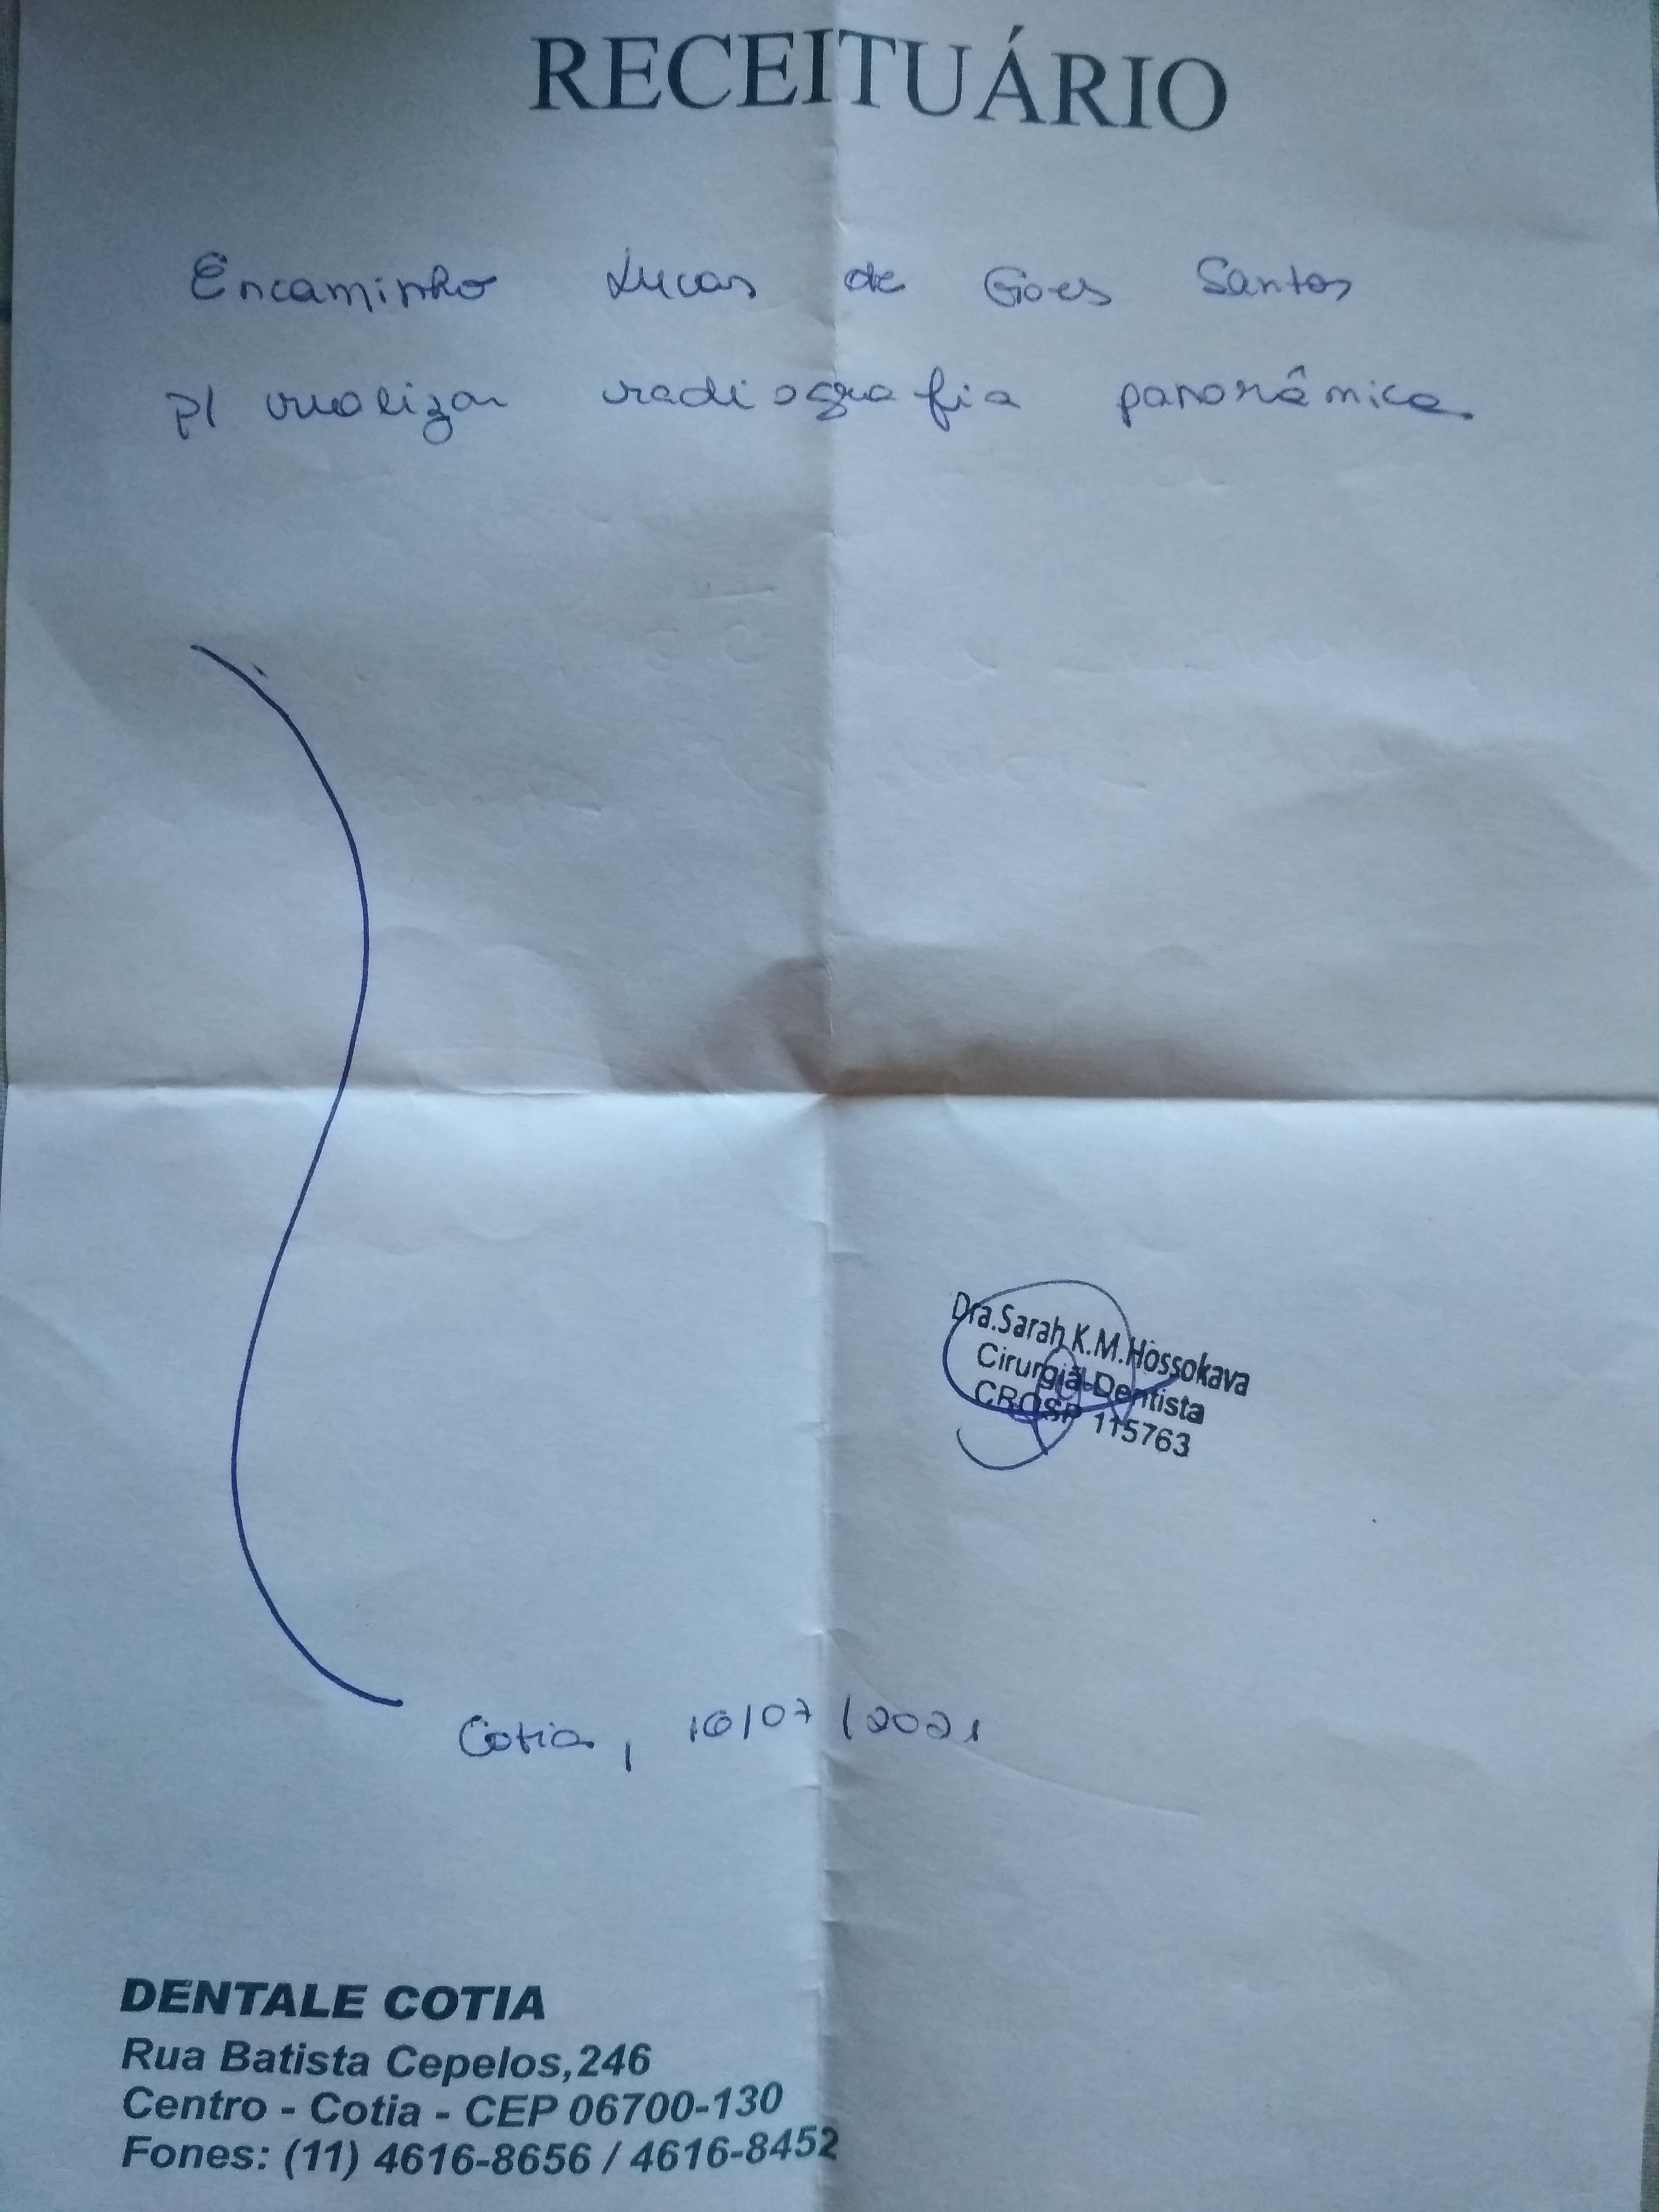 RECEITUÁRIO
Encaminho Lucas de Goes Santos
p/ realizar radiografia panorâmica.
Dra.Sarah K.M.Hossokava
Cirurgiã-Dentista
CROSP 115763
Cotia, 16/07/2021
DENTALE COTIA
Rua Batista Cepelos,246
Centro - Cotia - CEP 06700-130
Fones: (11) 4616-8656 / 4616-8452